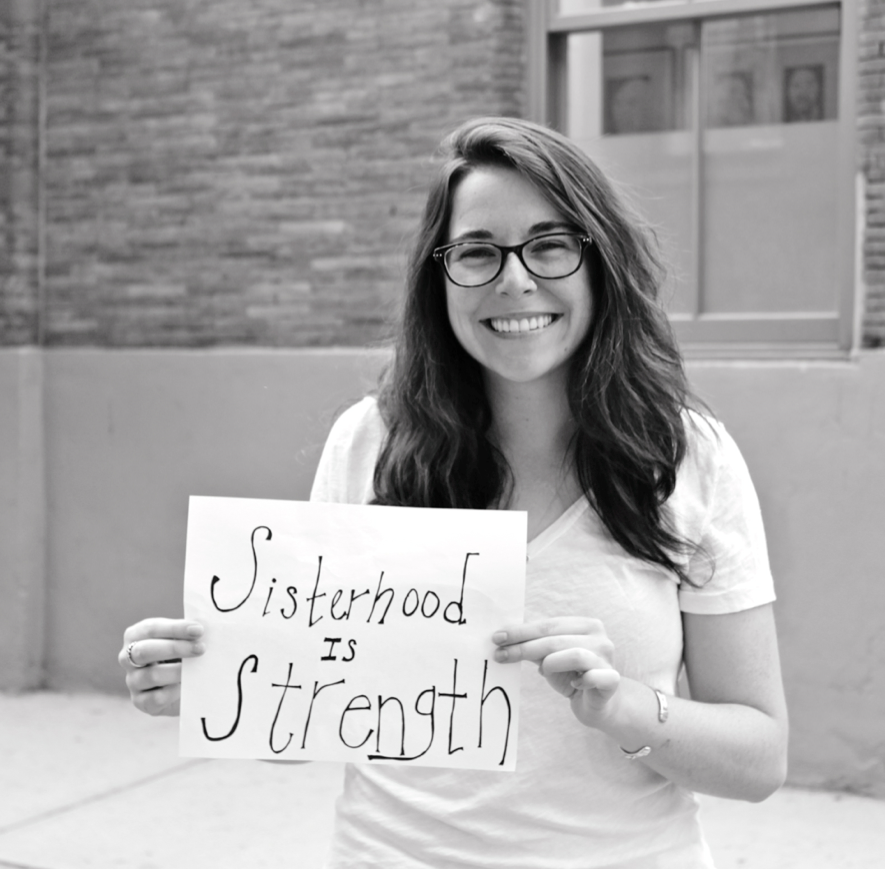 Sisterhood
IS
Strength